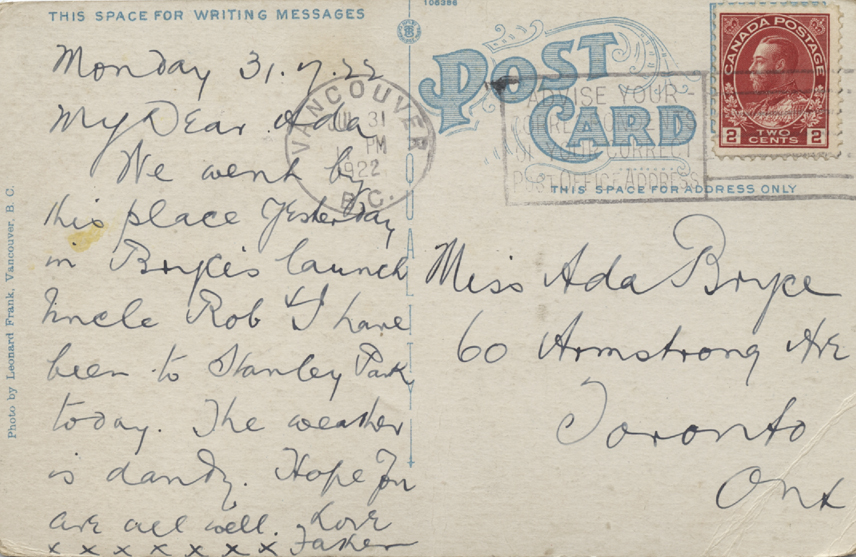 THIS SPACE FOR WRITING MESSAGES
Monday 31.7.22
My Dear Ada
We went by
this place Yesterday
in Bryce's launch
Uncle Rob & I have
been to Stanley Park
today. The weather
is dandy. Hope you
are all well. Love
x x x x x x x x Father
Photo by Leonard Frank, Vancouver, B. C.
106386
POST
CARD
VANCOUVER
JUL 31
PM
1922
B.C.
ADVISE YOUR
CORRECT
POST OFFICE ADDRESS
CANADA POSTAGE
2 TWO CENTS 2
THIS SPACE FOR ADDRESS ONLY
Miss Ada Bryce
60 Armstrong Ave
Toronto
Ont